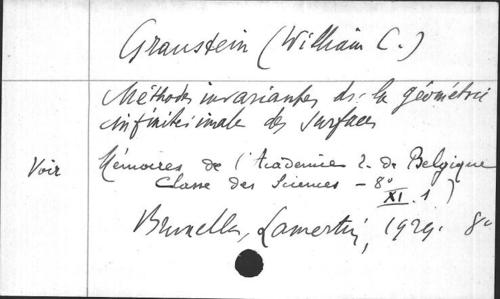 Graustein (William C.)
Méthodes invariantes ds. la géométrie
infinitésimale des surfaces
Voir Mémoires de l'Académie r. de Belgique
Classe des Sciences - 8°
XI. 1)
Bruxelles, Lamertin, 1929. 8°